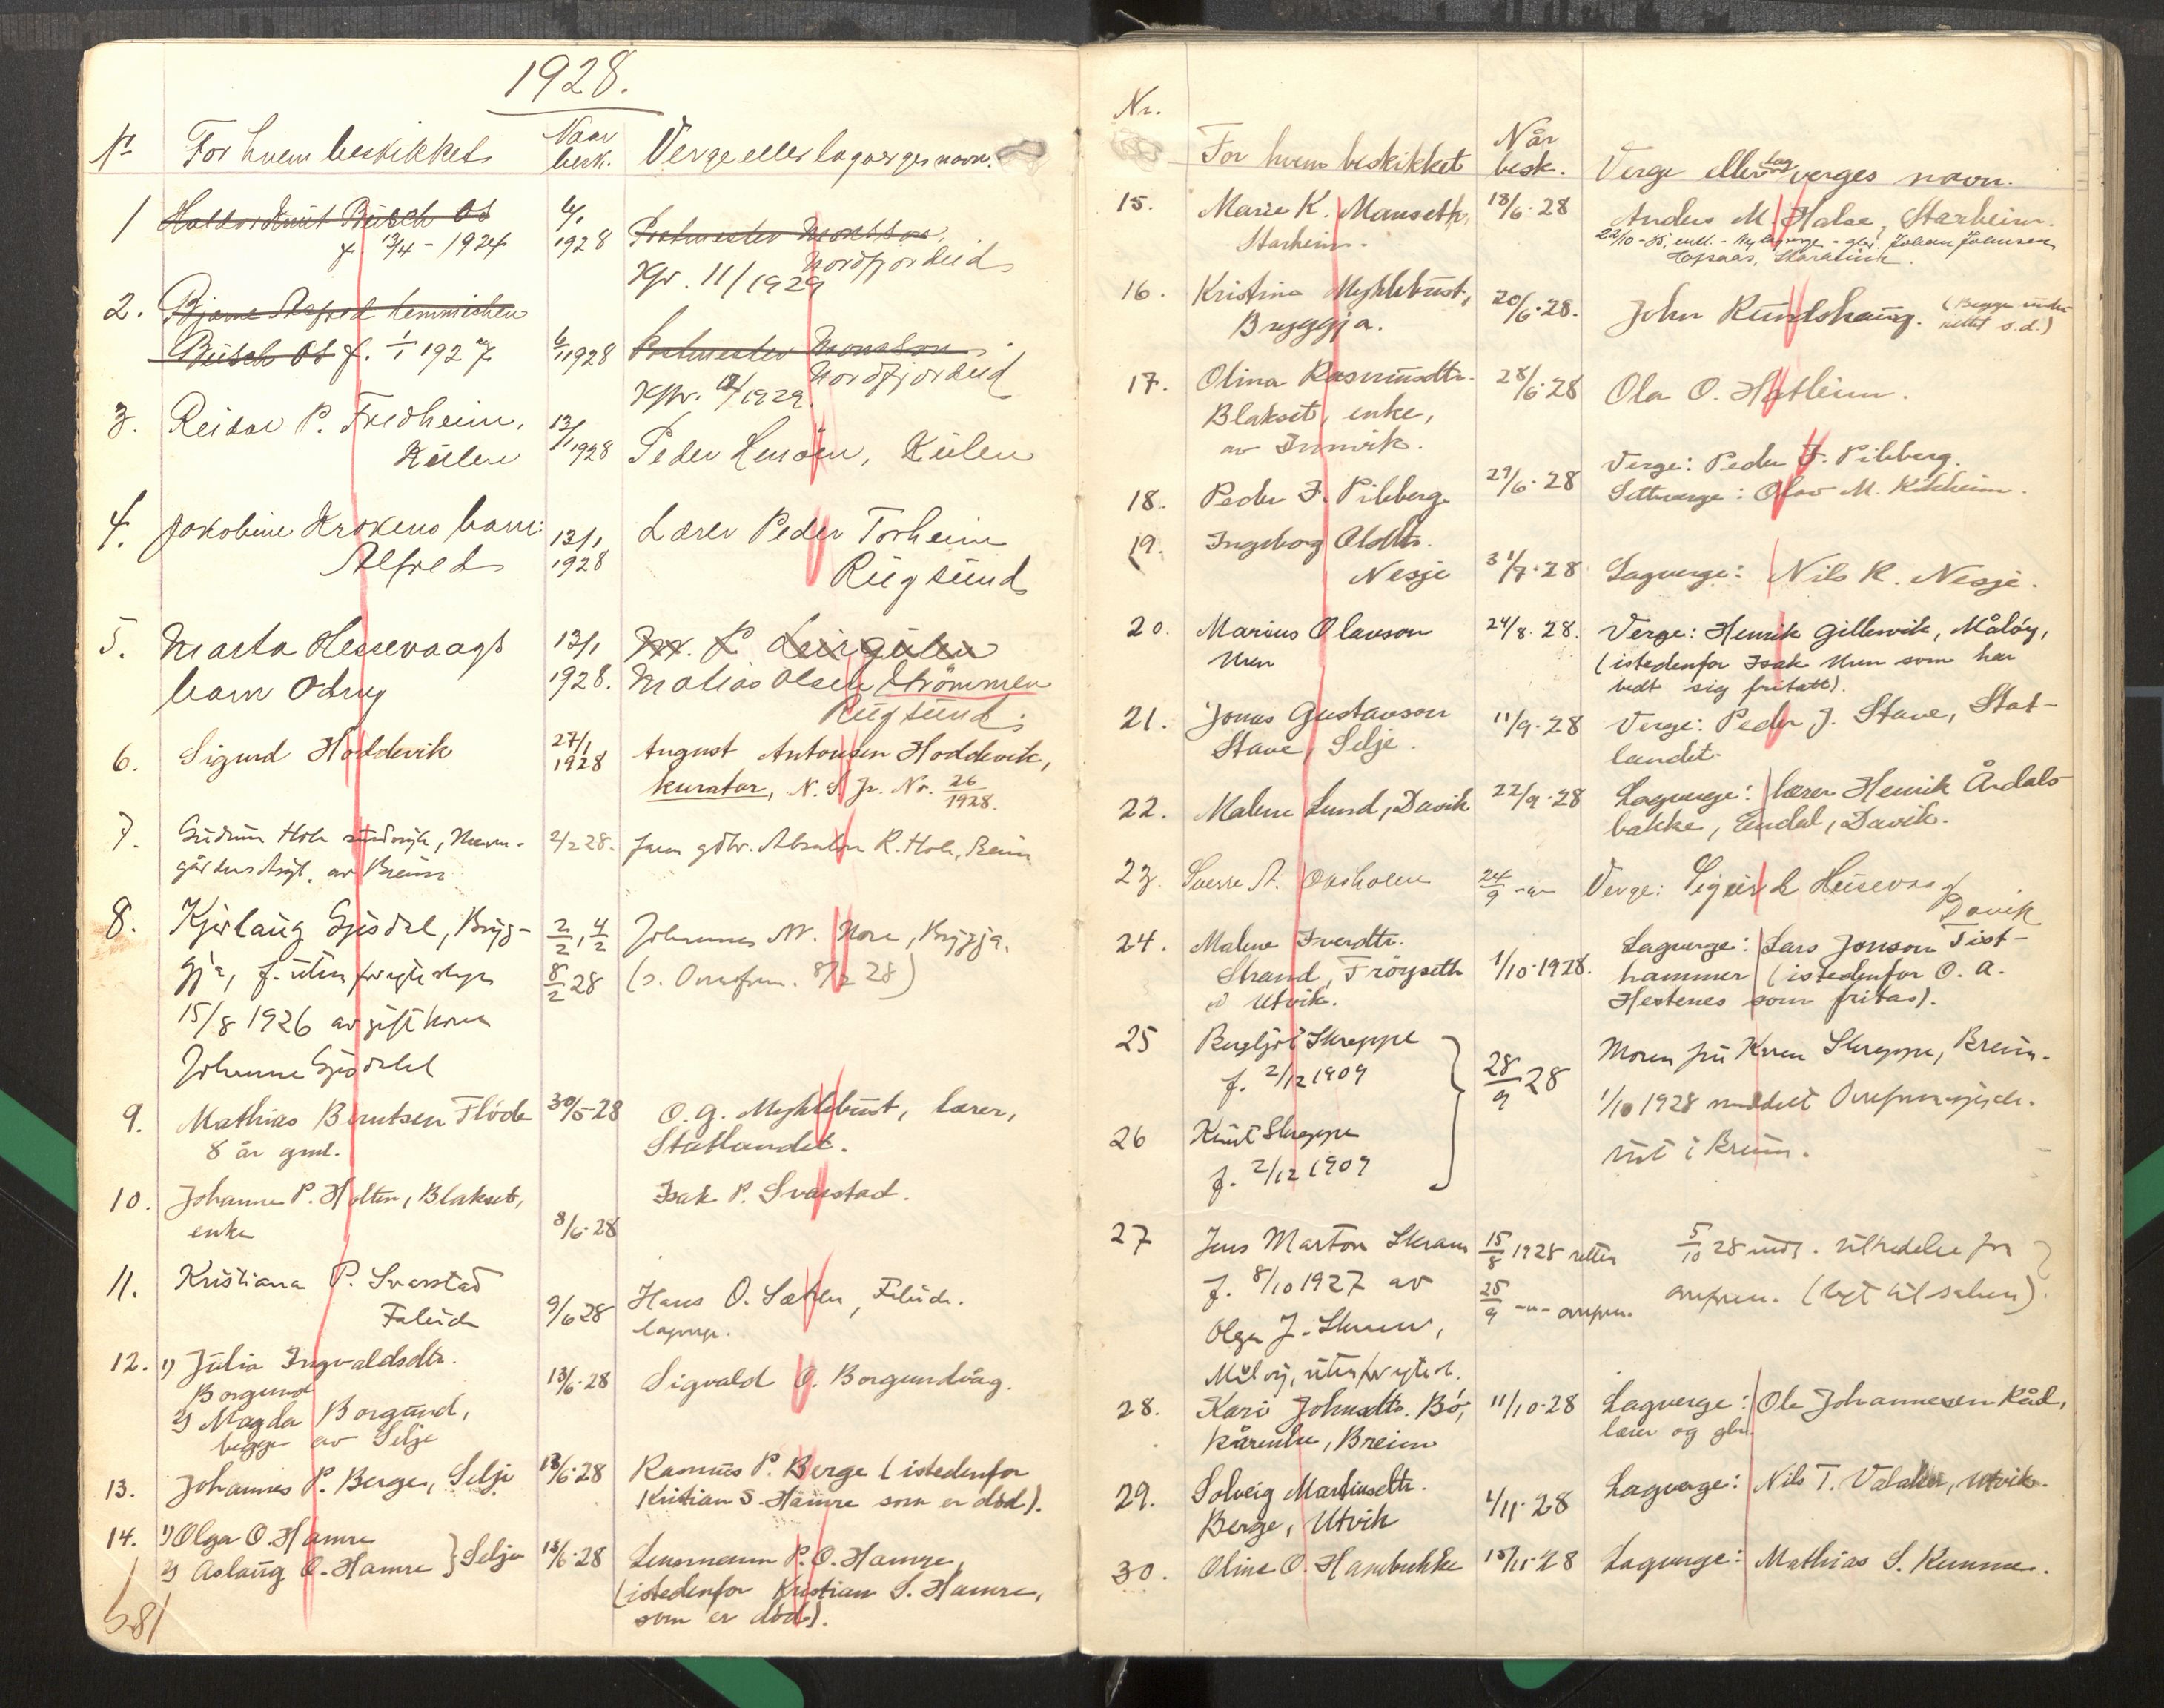 1928.
Nr For hvem beskikket Naar besk. Verge eller lagverges navn.
1 Halvor Knut Büsch Os 6/1 1928 Postmester Monssen,
f. 13/4 - 1924 Nordfjordeid
Kfr. 11/1929
2. Bjarne Alfred Hemmichen
Büsch Os f. 1/1 1927 6/1 1928 Postmester Monssen.
Nordfjordeid
Kfr. 12/1929.
3. Reidar P. Fredheim, 13/1 1928 Peder Henden, Külen
Külen
4. Jakobine Krokens barn: 13/1 1928 Lærer Peder Torheim
Alfred Rugsund
5. Marta Hessevaags 13/1 1928. M. P. Leirgulen
barn Odny Matias Olsen Strömmen
Rugsund.
6. Sigurd Hoddevik 27/1 1928 August Antonsen Hoddevik,
kurator, N. S. Jr. Nr. 26/1928.
7. Gudrun Hole 2/2 28. Faren gdbr. Absalon R. Hole, Breim
av Breim
8. Kjerlaug Gjødal, Bryg- 2/2, 4/2 Johannes M. Nore, Bryggja.
gja, f. uten for egteskap 8/2 28 (s. Overform. 8/2 28)
15/8 1926 av gift kone
Johanne Gjødal
9. Mathias Berntsen Flöde 30/5-28 O. G. Myklebust, lærer,
8 år gml. Statlandet.
10. Johanne P. Holten, Blakset, Isak P. Svarstad.
enke 8/6-28
11. Kristiana P. Svarstad
Faleide 9/6 28 Hans O. Sæten, Faleide.
lagverge.
12. 1) Julia Ingvaldsdtr. 13/6-28 Sigvald O. Borgundvåg.
Borgund
2) Magda Borgund,
begge av Selje
13. Johannes P. Berge, Selje 13/6-28 Rasmus P. Berge (istedenfor
Kristian S. Hamre som er död).
14. 1) Olga O. Hamre
2) Aslaug O. Hamre } Selje 13/6-28 Lensmann P. O. Hamre,
(istedenfor Kristian S. Hamre,
som er död).
Nr.
For hvem beskikket Når besk. Verge eller lagverges navn.
15. Marie K. Mauseth, 18/6-28 Anders M. Halse, Starheim.
Starheim. 22/10-35, Johan Johansen
16. Kristina Myklebust, 20/6-28. John Rundshaug. (Begge under-
Bryggja. rettet s.d.)
17. Olina Rasmusdtr. 28/6-28 Ola O. Hatleim.
Blakset, enke,
av Innvik.
18. Peder J. Pilskog 29/6-28 Verge: Peder J. Pilskog.
Settverge: Olav M. Kibsheim.
19. Ingeborg Olsdtr.
Nesje 31/7-28 Lagverge: Nils R. Nesje.
20. Marius Olavson 24/8-28. Verge: Henrik Gillesvik, Målöy,
Uren (istedenfor Isak Uren som har
bedt sig fritatt).
21. Jonas Gustavson 11/9-28 Verge: Peder J. Stave, Stat-
Stave, Selje. landet.
22. Malene Lund, Davik 22/9-28 Lagverge: lærer Henrik Årdals-
bakke, Endal, Davik.
23. Sverre A. Oksholm 24/9 -"- Verge: Sigurd Husevaag
Davik
24. Malene Iverdtr. Lagverge: Lars Jonson Tist-
Strand, Fröyseth 1/10-1928. hammer (istedenfor O. A.
i Utvik. Hestenes som fritas).
25 Bergljot Skreppe
f. 2/12 1909 28/9 28 Moren fru Karen Skreppe, Breim.
1/10 1928 meddelt
26 Knut Skreppe
f. 2/12 1909 i Breim.
27 Jens Marton Skram 15/8 1928 retten 5/10 28
f. 8/10 1927 av 25/9 -"- overform.
Olga J. Skram,
28. Kari Johnsdtr. Bö, 11/10-28 Lagverge: Ole Johannesen Råd,
kårenke, Breim lærer og gbr.
29. Solveig Martinsdtr. 1/11-28 Lagverge: Nils T. Valaker, Utvik.
Berge, Utvik
30. Oline O. Hambakke 15/11-28 Lagverge: Mathias S. Rimme.